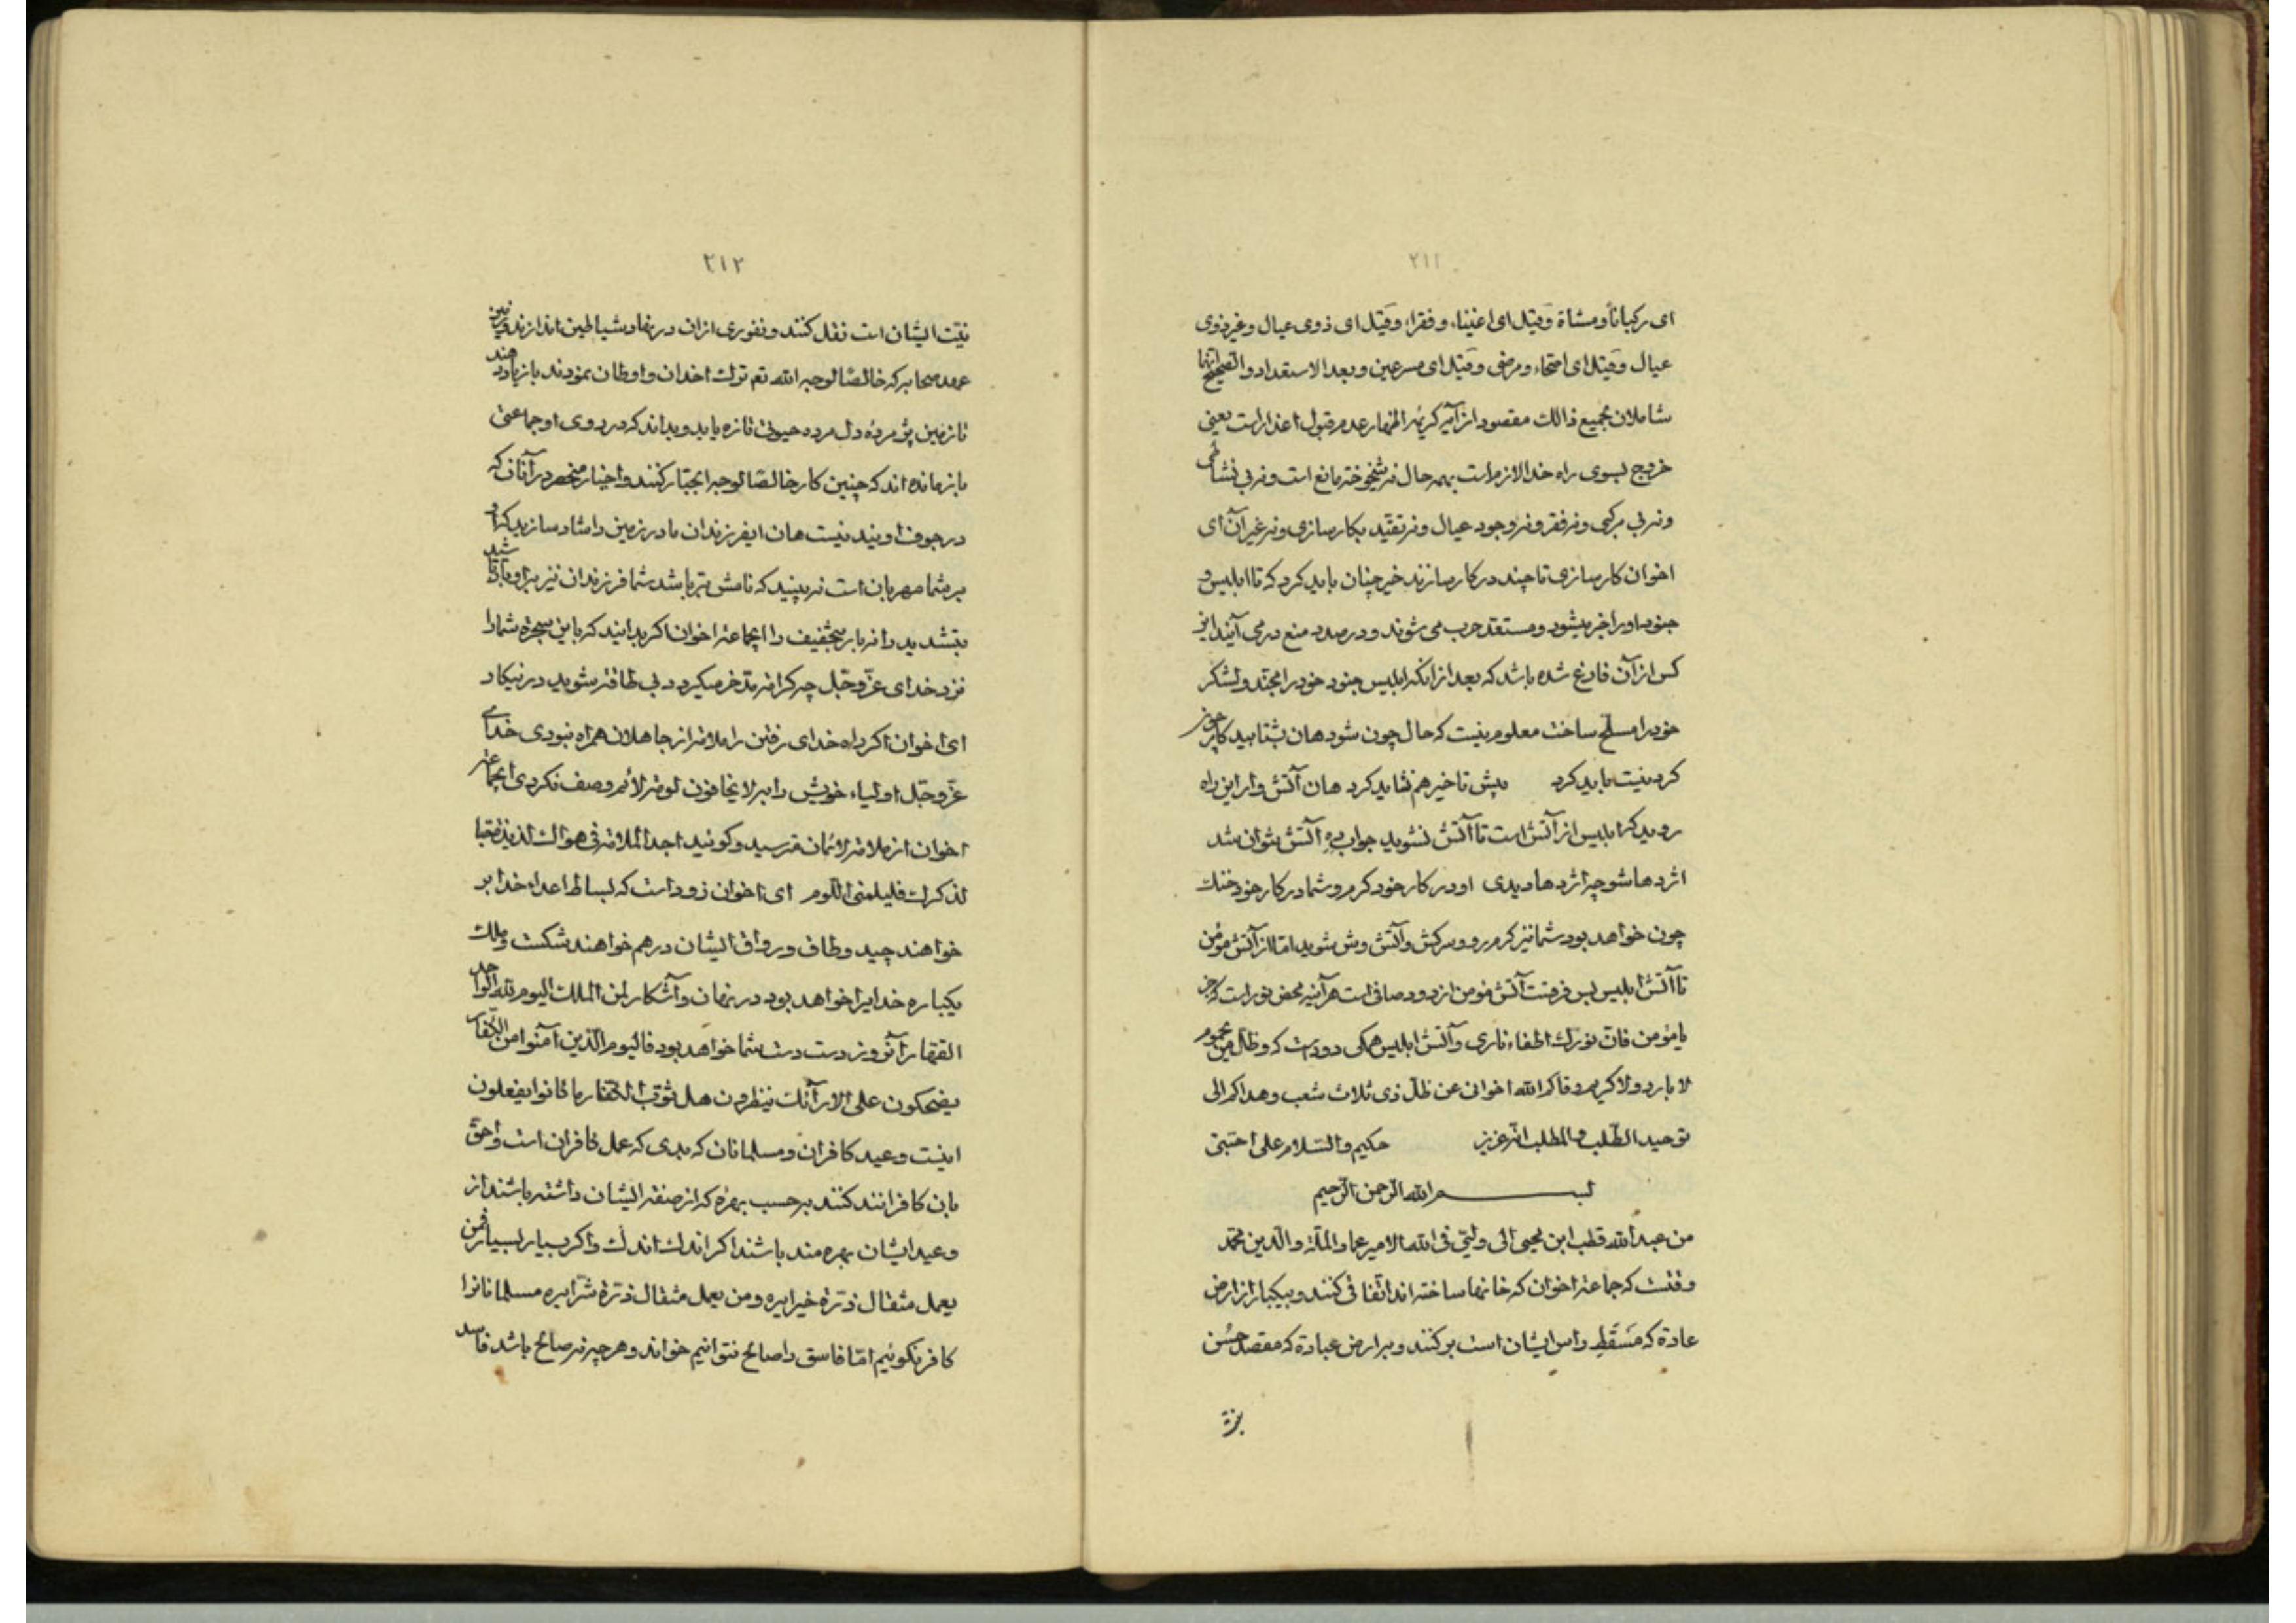 ٢١١
ای رکباناً و مشاة و قیل ای اغنیاء و فقراء و قیل ای ذوی عیال و غیر ذوی
عیال و قیل ای اصحاء و مرضی و قیل ای مسرعین و بعد الاستعداد و الصحیح انها
شاملان بجمیع ذالک مقصود از آیه کریمه اظهار عدم قبول اعذار است یعنی
خروج بسوی راه خدا لازم است بهمه حال نه شیخوخته مانع است و نه بی نشاطی
و نه بی مرکبی و نه فقر و نه وجود عیال و نه تقید بکارسازی و نه غیر آن ای
اخوان کارسازی تا چند در کار سازند خیر چنان باید کرد که تا ابلیس و
جنود او را خبر میشود و مستعد حرب می شوند و در صدد منع در می آیند این
کس از آن فارغ شده باشد که بعد از انکه ابلیس جنود خود را مجند و لشکر
خود را مسلح ساخت معلوم نیست که حال چون شود هان بشتابید کار چون
کردنیست باید کرد پیش تاخیر هم نشاید کرد هان آتش وار این راه
روید که ابلیس از آتش است تا آتش نشوید جواب ره آتش نتوان شد
اژدها شو چه اژدها دیدی او در کار خود کرم و شما در کار خود خنک
چون خواهد بود شما نیز کرم رو و سرکش و آتش وش شوید اما از آتش مؤمن
تا آتش ابلیس بس فرقست آتش مؤمن از دود صافی است هر آینه محض نور است که جز
یا مؤمن فان نورک اطفاء ناری و آتش ابلیس همکی دود است که و ظل من یحموم
لا بارد و لا کریم وقاکم الله اخوانی عن ظل ذی ثلاث شعب و هداکم الی
توحید الطلب و المطلب انه عزیز حکیم و السلام علی احبتی
بسم الله الرحمن الرحیم
من عبد الله قطب ابن یحیی الی ولیی فی الله الامیر عماد الملة و الدین محمد
وقتست که جماعة اخوان که خانها ساخته اند اتفاقی کنند و بیکبار از ارض
عادة که مسقط راس ایشان است بر کنند و بر ارض عبادة که مقصد حسن
نیة
٢١٢
نیت ایشان است نقل کنند و نفوری ازان در نهاد شیاطین اندازند و باین
عهد صحابه که خالصاً لوجه الله تعم ترک اخدان و اوطان نمودند بازیاد دهند
تا زمین پژمرده دل مرده حیوتی تازه یابد و بداند که در روی او جماعتی
بازمانده اند که چنین کار خالصاً لوجه الجبار کنند و اخیار منحصر در آنان که
در جوف اویند نیست هان ایفرزندان مادر زمین را شاد سازید که او
بر شما مهربان است نه بینید که نامش بر باشد شما فرزندان نیز بر او بار باشید
بتشدید را نه بار بتخفیف را ایجماعة اخوان اکر بدانید که باین هجرة شما را
نزد خدای عز و جل چه کرامة مدخر میکردد بی طاقة شوید در نیکار
ای اخوان اکر در راه خدای رفتن را ملامة از جاهلان همراه نبودی خدای
عز و جل اولیاء خویش را به لا یخافون لومة لائم وصف نکردی ایجماعة
اخوان از ملامة لائمان مترسید و کوئید اجد الملامة فی هواک لذیذة حبا
لذکرک فلیلمنی اللوم ای اخوان زود است که بساط اعداء خدا بر
خواهند چید و طاق و رواق ایشان در هم خواهند شکست و ملک
یکباره خدایرا خواهد بود در نهان و آشکار لمن الملک الیوم لله الواحد
القهار آنروز دست دست شما خواهد بود فالیوم الذین آمنوا من الکفار
یضحکون علی الارآئک ینظرون هل ثوب الکفار ما کانوا یفعلون
اینست وعید کافران و مسلمانان که بدی که عمل کافران است و احق
بان کافرانند کنند بر حسب بهره که از صفة ایشان داشته باشند از
وعید ایشان بهره مند باشند اکر اندک اندک و اکر بسیار بسیار فمن
یعمل مثقال ذرة خیرا یره و من یعمل مثقال ذرة شرا یره مسلمانانرا
کافر نکوئیم اما فاسق را صالح نتوانیم خواند و هر چه نه صالح باشد فاسد